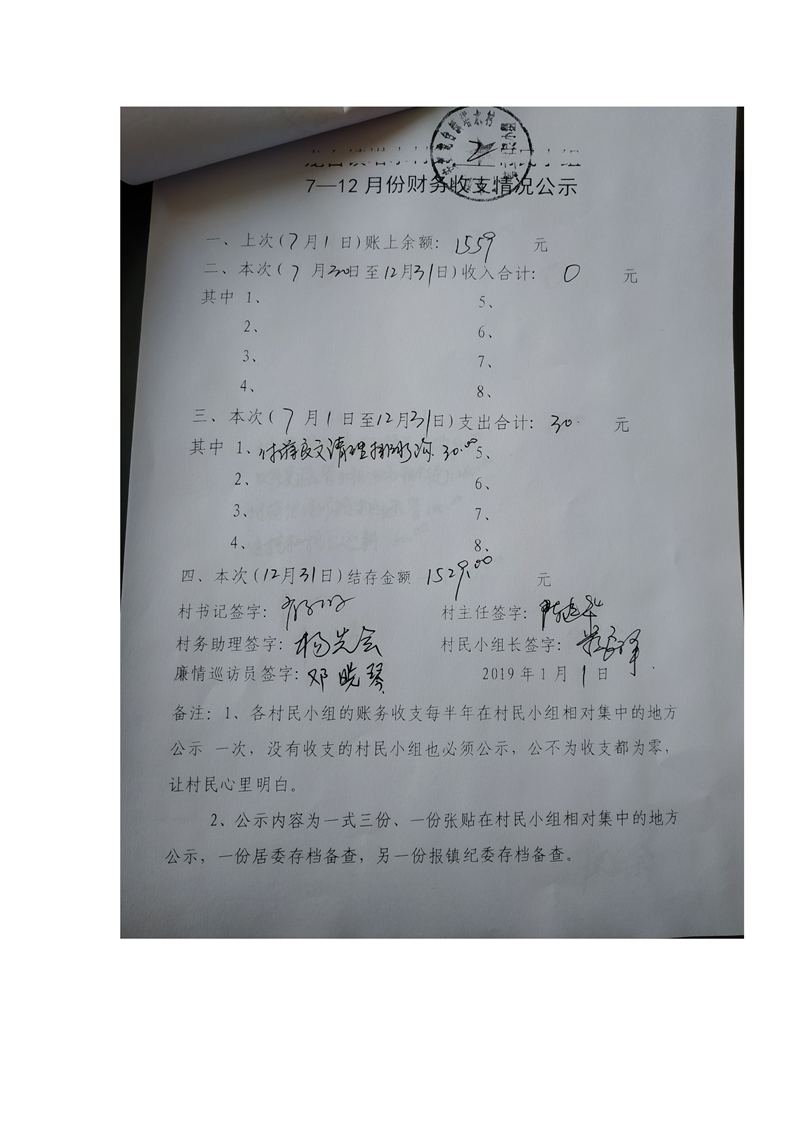 村民小组
7—12月份财务收支情况公示
一、上次(7月1日)账上余额: 1559 元
二、本次(7月30日至12月31日)收入合计: 0 元
其中 1、 5、
2、 6、
3、 7、
4、 8、
三、本次(7月1日至12月31日)支出合计: 30. 元
其中 1、付 清理排水沟 30.00 5、
2、 6、
3、 7、
4、 8、
四、本次(12月31日)结存金额 1529.00 元
村书记签字: 村主任签字:
村务助理签字: 杨先会 村民小组长签字:
廉情巡访员签字: 邓晓琴 2019年1月1日
备注: 1、各村民小组的账务收支每半年在村民小组相对集中的地方
公示 一次, 没有收支的村民小组也必须公示, 公不为收支都为零,
让村民心里明白。
2、公示内容为一式三份、一份张贴在村民小组相对集中的地方
公示, 一份居委存档备查, 另一份报镇纪委存档备查。